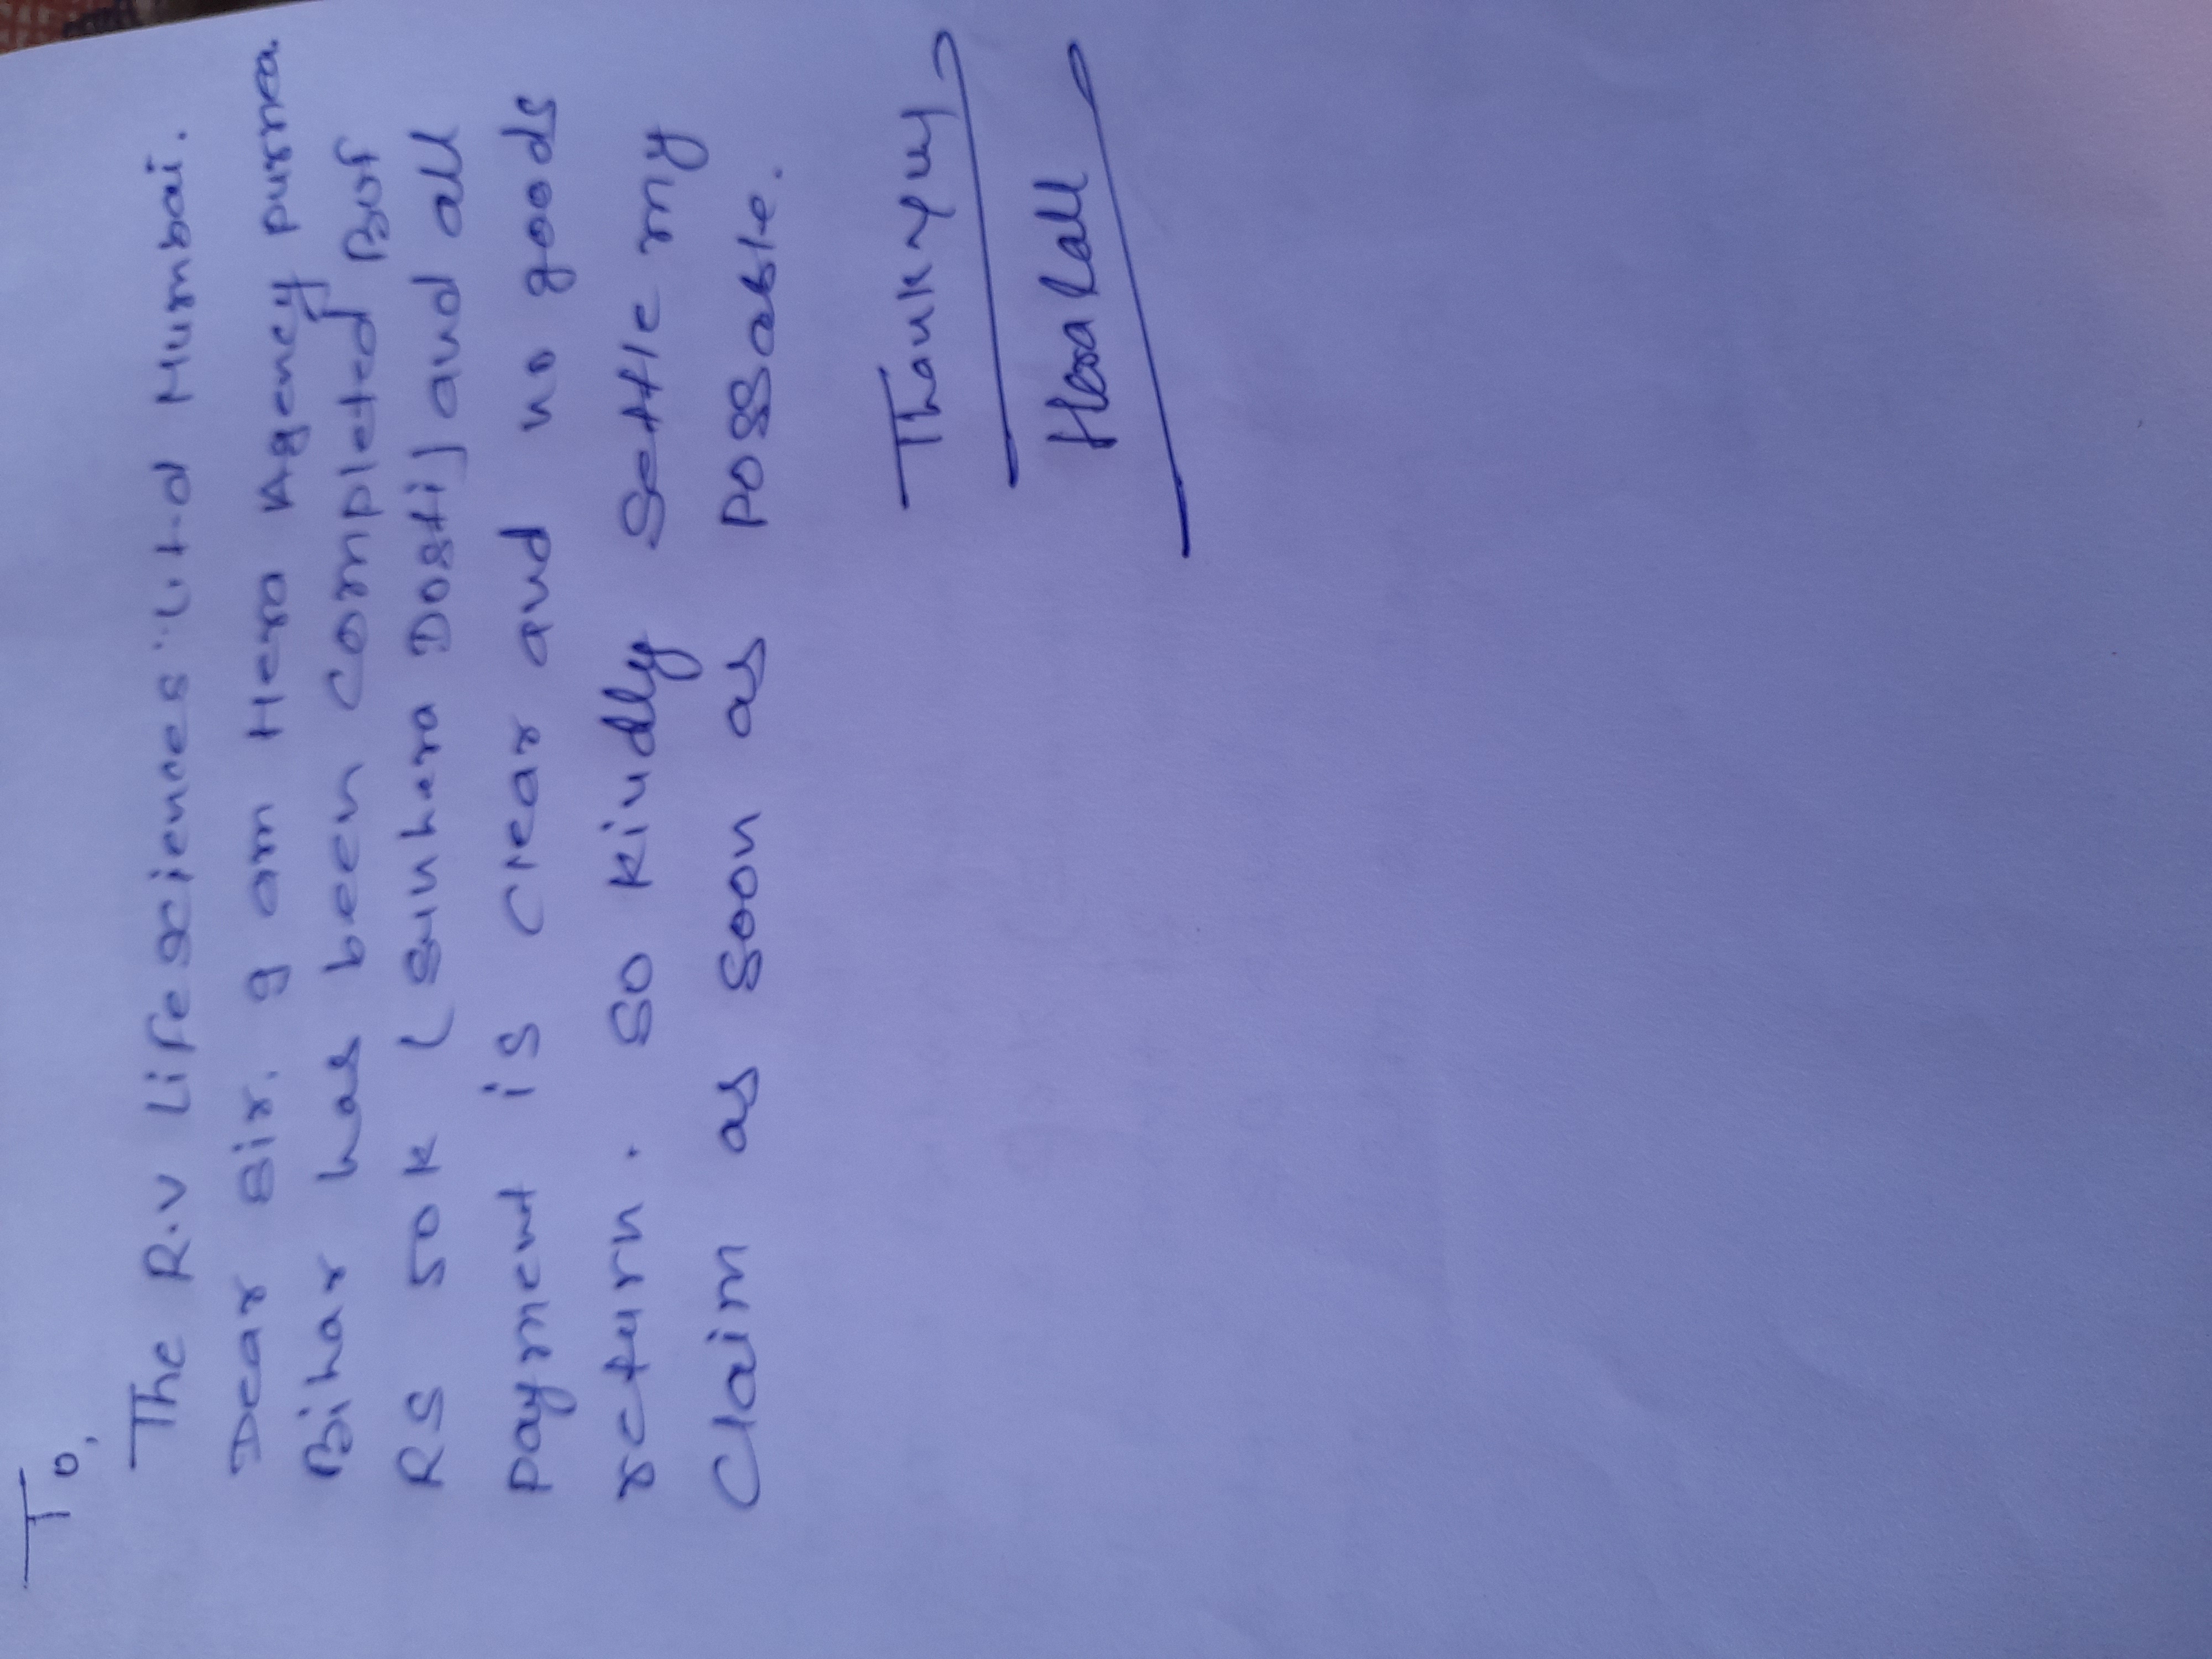 To,
The R.V Lifesciences Ltd Mumbai.
Dear sir. I am Hera Agency purnea
Bihar has been completed
RS 50K (Sunhera Dosti) and all
payment is clear and no goods
return. so kindly settle my
claim as soon as possable.
Thank you
Hera Lall